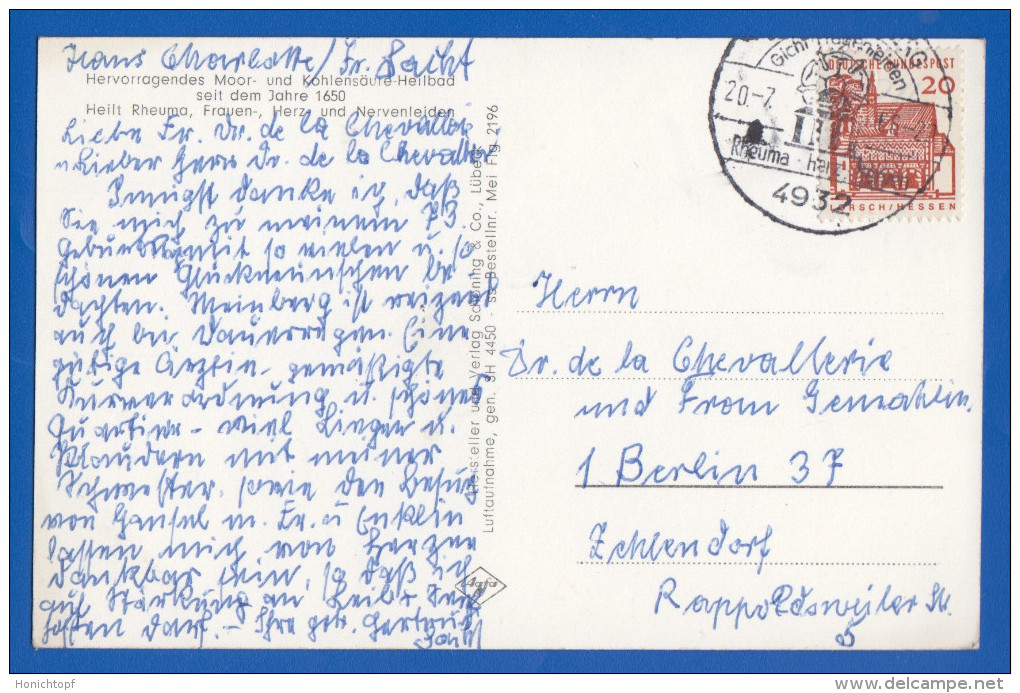 Hans Charlotte / Fr.
Hervorragendes Moor- und Kohlensäure-Heilbad
seit dem Jahre 1650
Heilt Rheuma, Frauen-, Herz- und Nervenleiden
Liebe Fr. Dr. de la Chevallerie
u. Lieber Herr Dr. de la Chevallerie
Innigst danke ich, daß
Sie mich zu meinem 73.
Geburtstag mit so vielen u. so
schönen Glückwünschen be
dachten. Meinberg ist reizend
auch bei Dauerregen. Eine
gütige Ärztin - gemäßigte
Kurverordnung u. schönes
Quartier - viel Liegen u.
Plaudern mit meiner
Schwester, sowie den Besuch
von Gansel m. Fr. u Enklin
lassen mich von Herzen
dankbar sein, so daß ich
auf Stärkung an Leib u See
hoffen darf. - Ihre getr. Gertrud
Hersteller und Verlag Schöning & Co., Lübeck
Luftaufnahme, gen. SH 4450 - ss Bestellnr. Mei Flg 2196
Agfa
DEUTSCHE BUNDESPOST
20
LORSCH/HESSEN
Gicht Frauenleiden
20.-7.
Rheuma
4932
Herrn
Dr. de la Chevallerie
und Frau Gemahlin
1 Berlin 37
Zehlendorf
Rappoldsweiler Str.
Honichtopf
delcampe.net